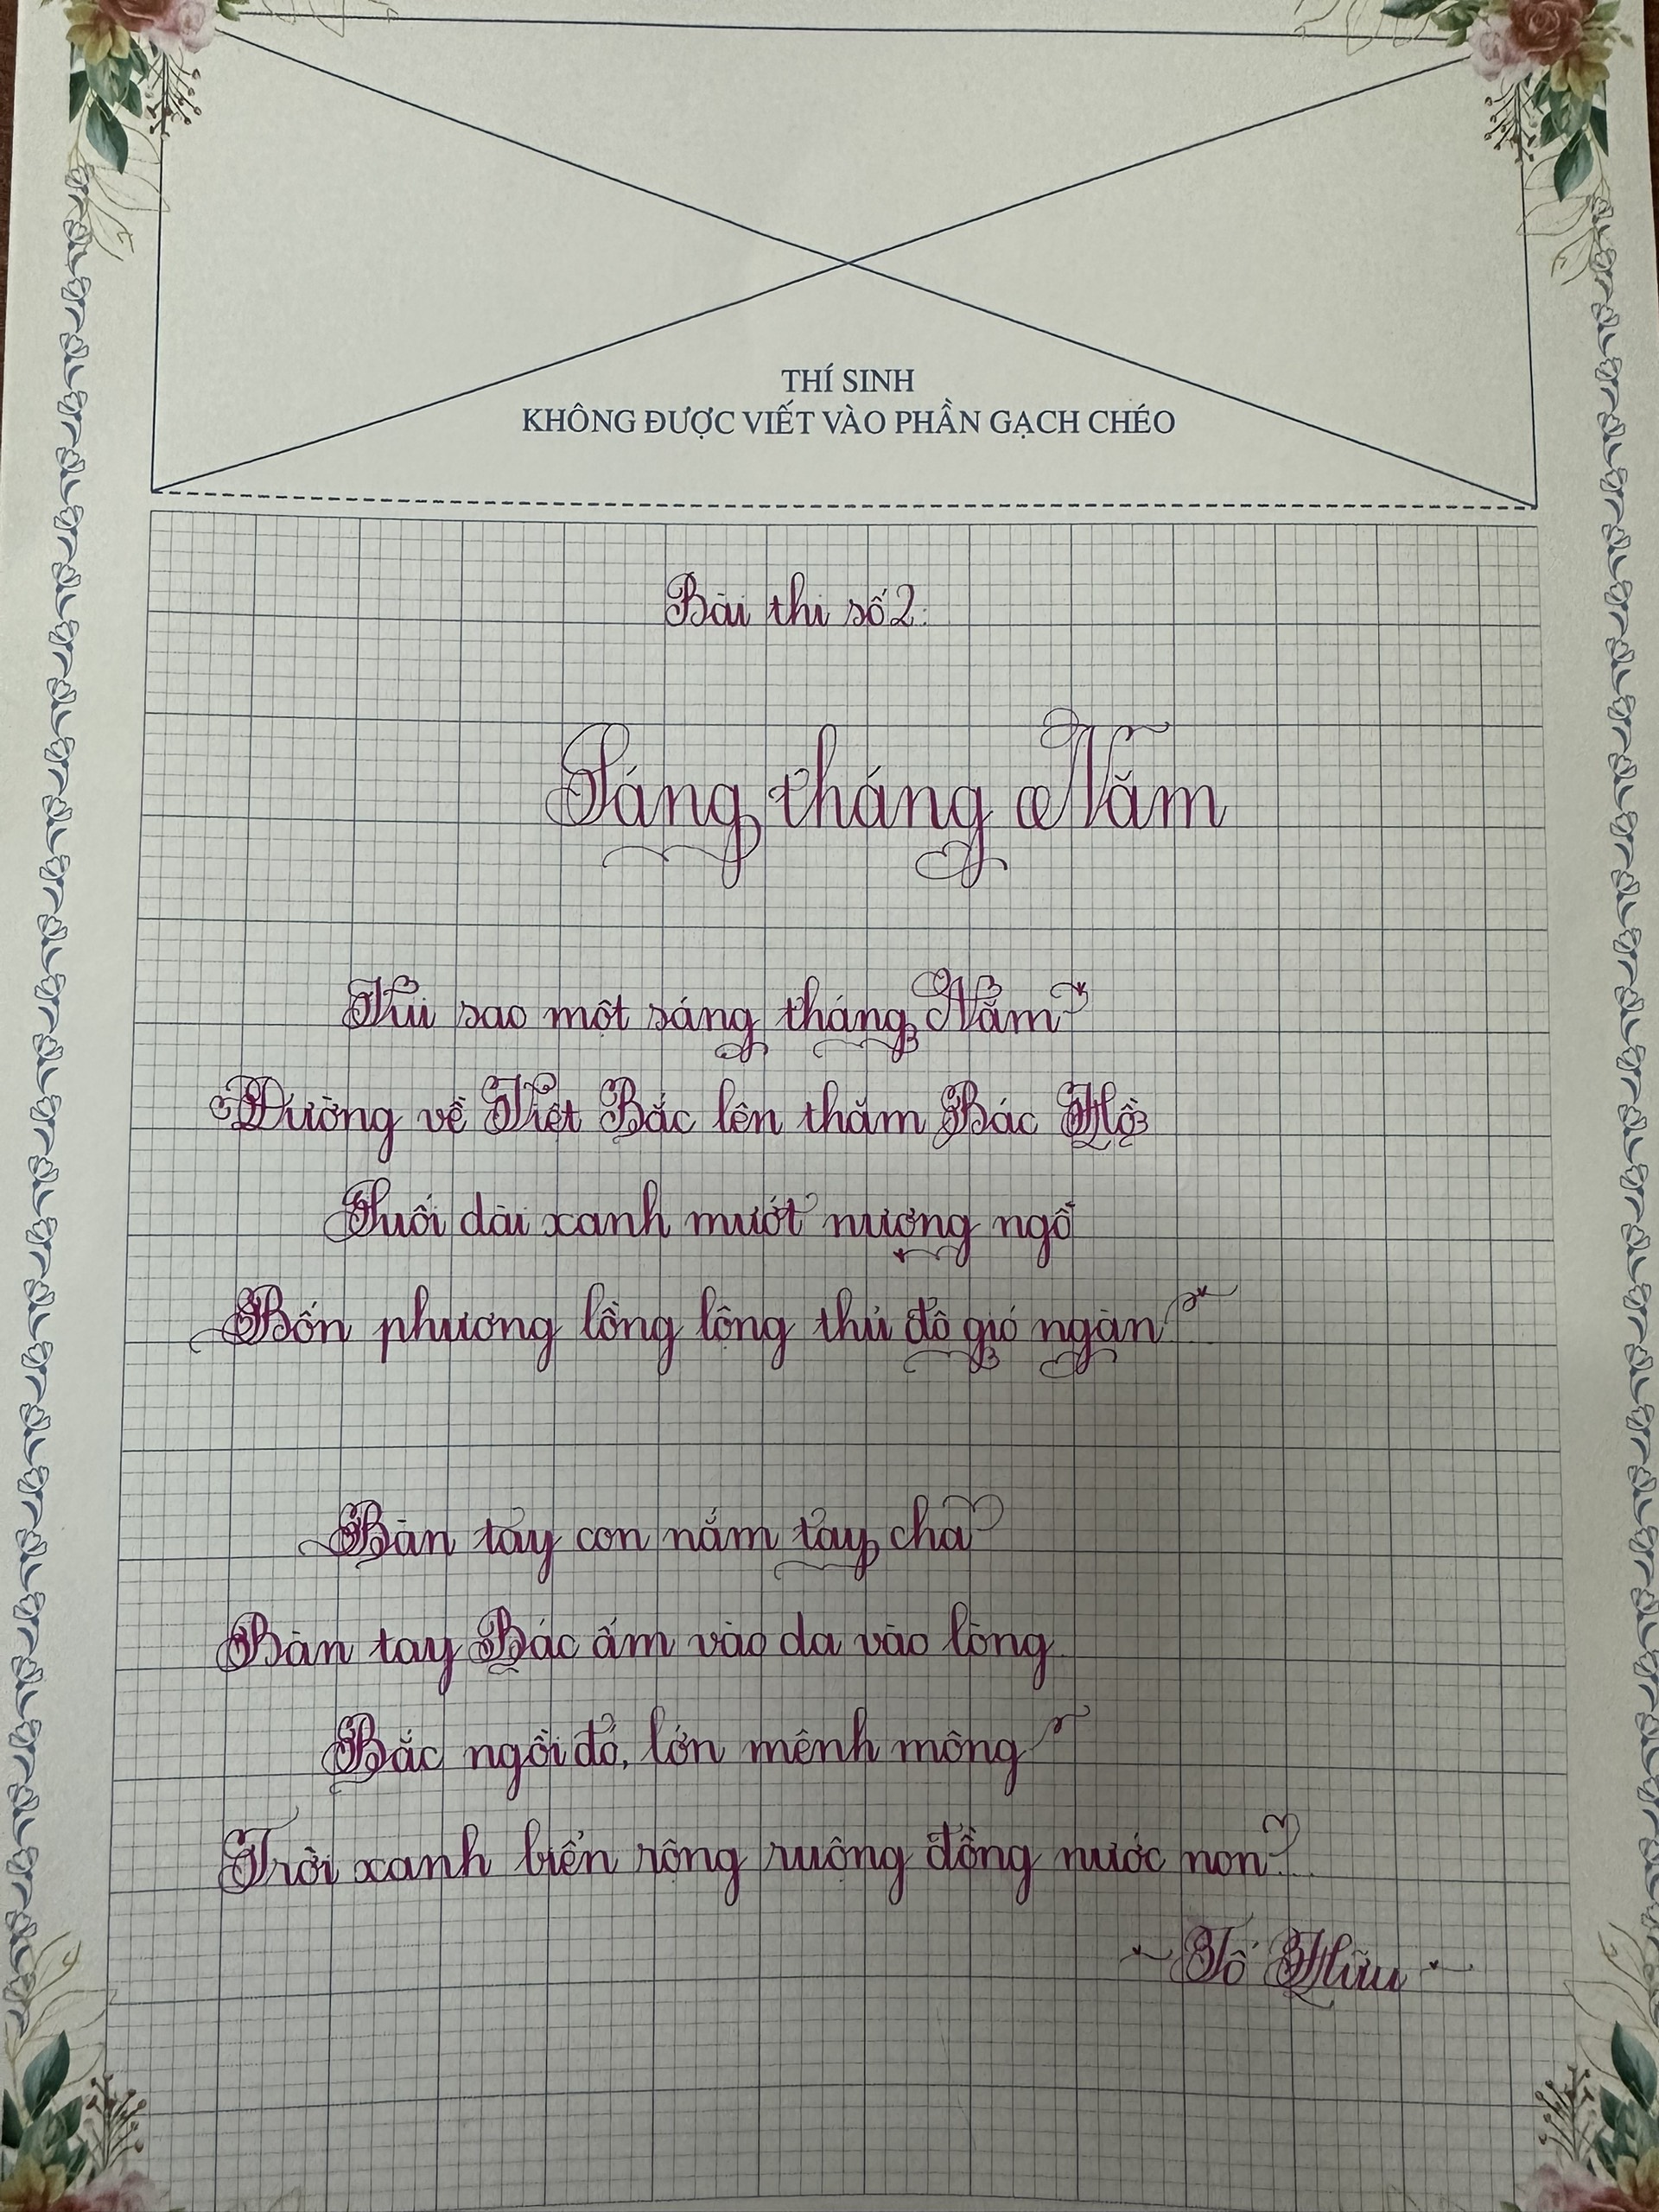 THÍ SINH
KHÔNG ĐƯỢC VIẾT VÀO PHẦN GẠCH CHÉO
Bài thi số 2:
Sáng tháng Năm
Vui sao một sáng tháng Năm
Đường về Việt Bắc lên thăm Bác Hồ
Suối dài xanh mướt nương ngô
Bốn phương lồng lộng thủ đô gió ngàn
Bàn tay con nắm tay cha
Bàn tay Bác ấm vào da vào lòng
Bác ngồi đó, lớn mênh mông
Trời xanh biển rộng ruộng đồng nước non
Tố Hữu